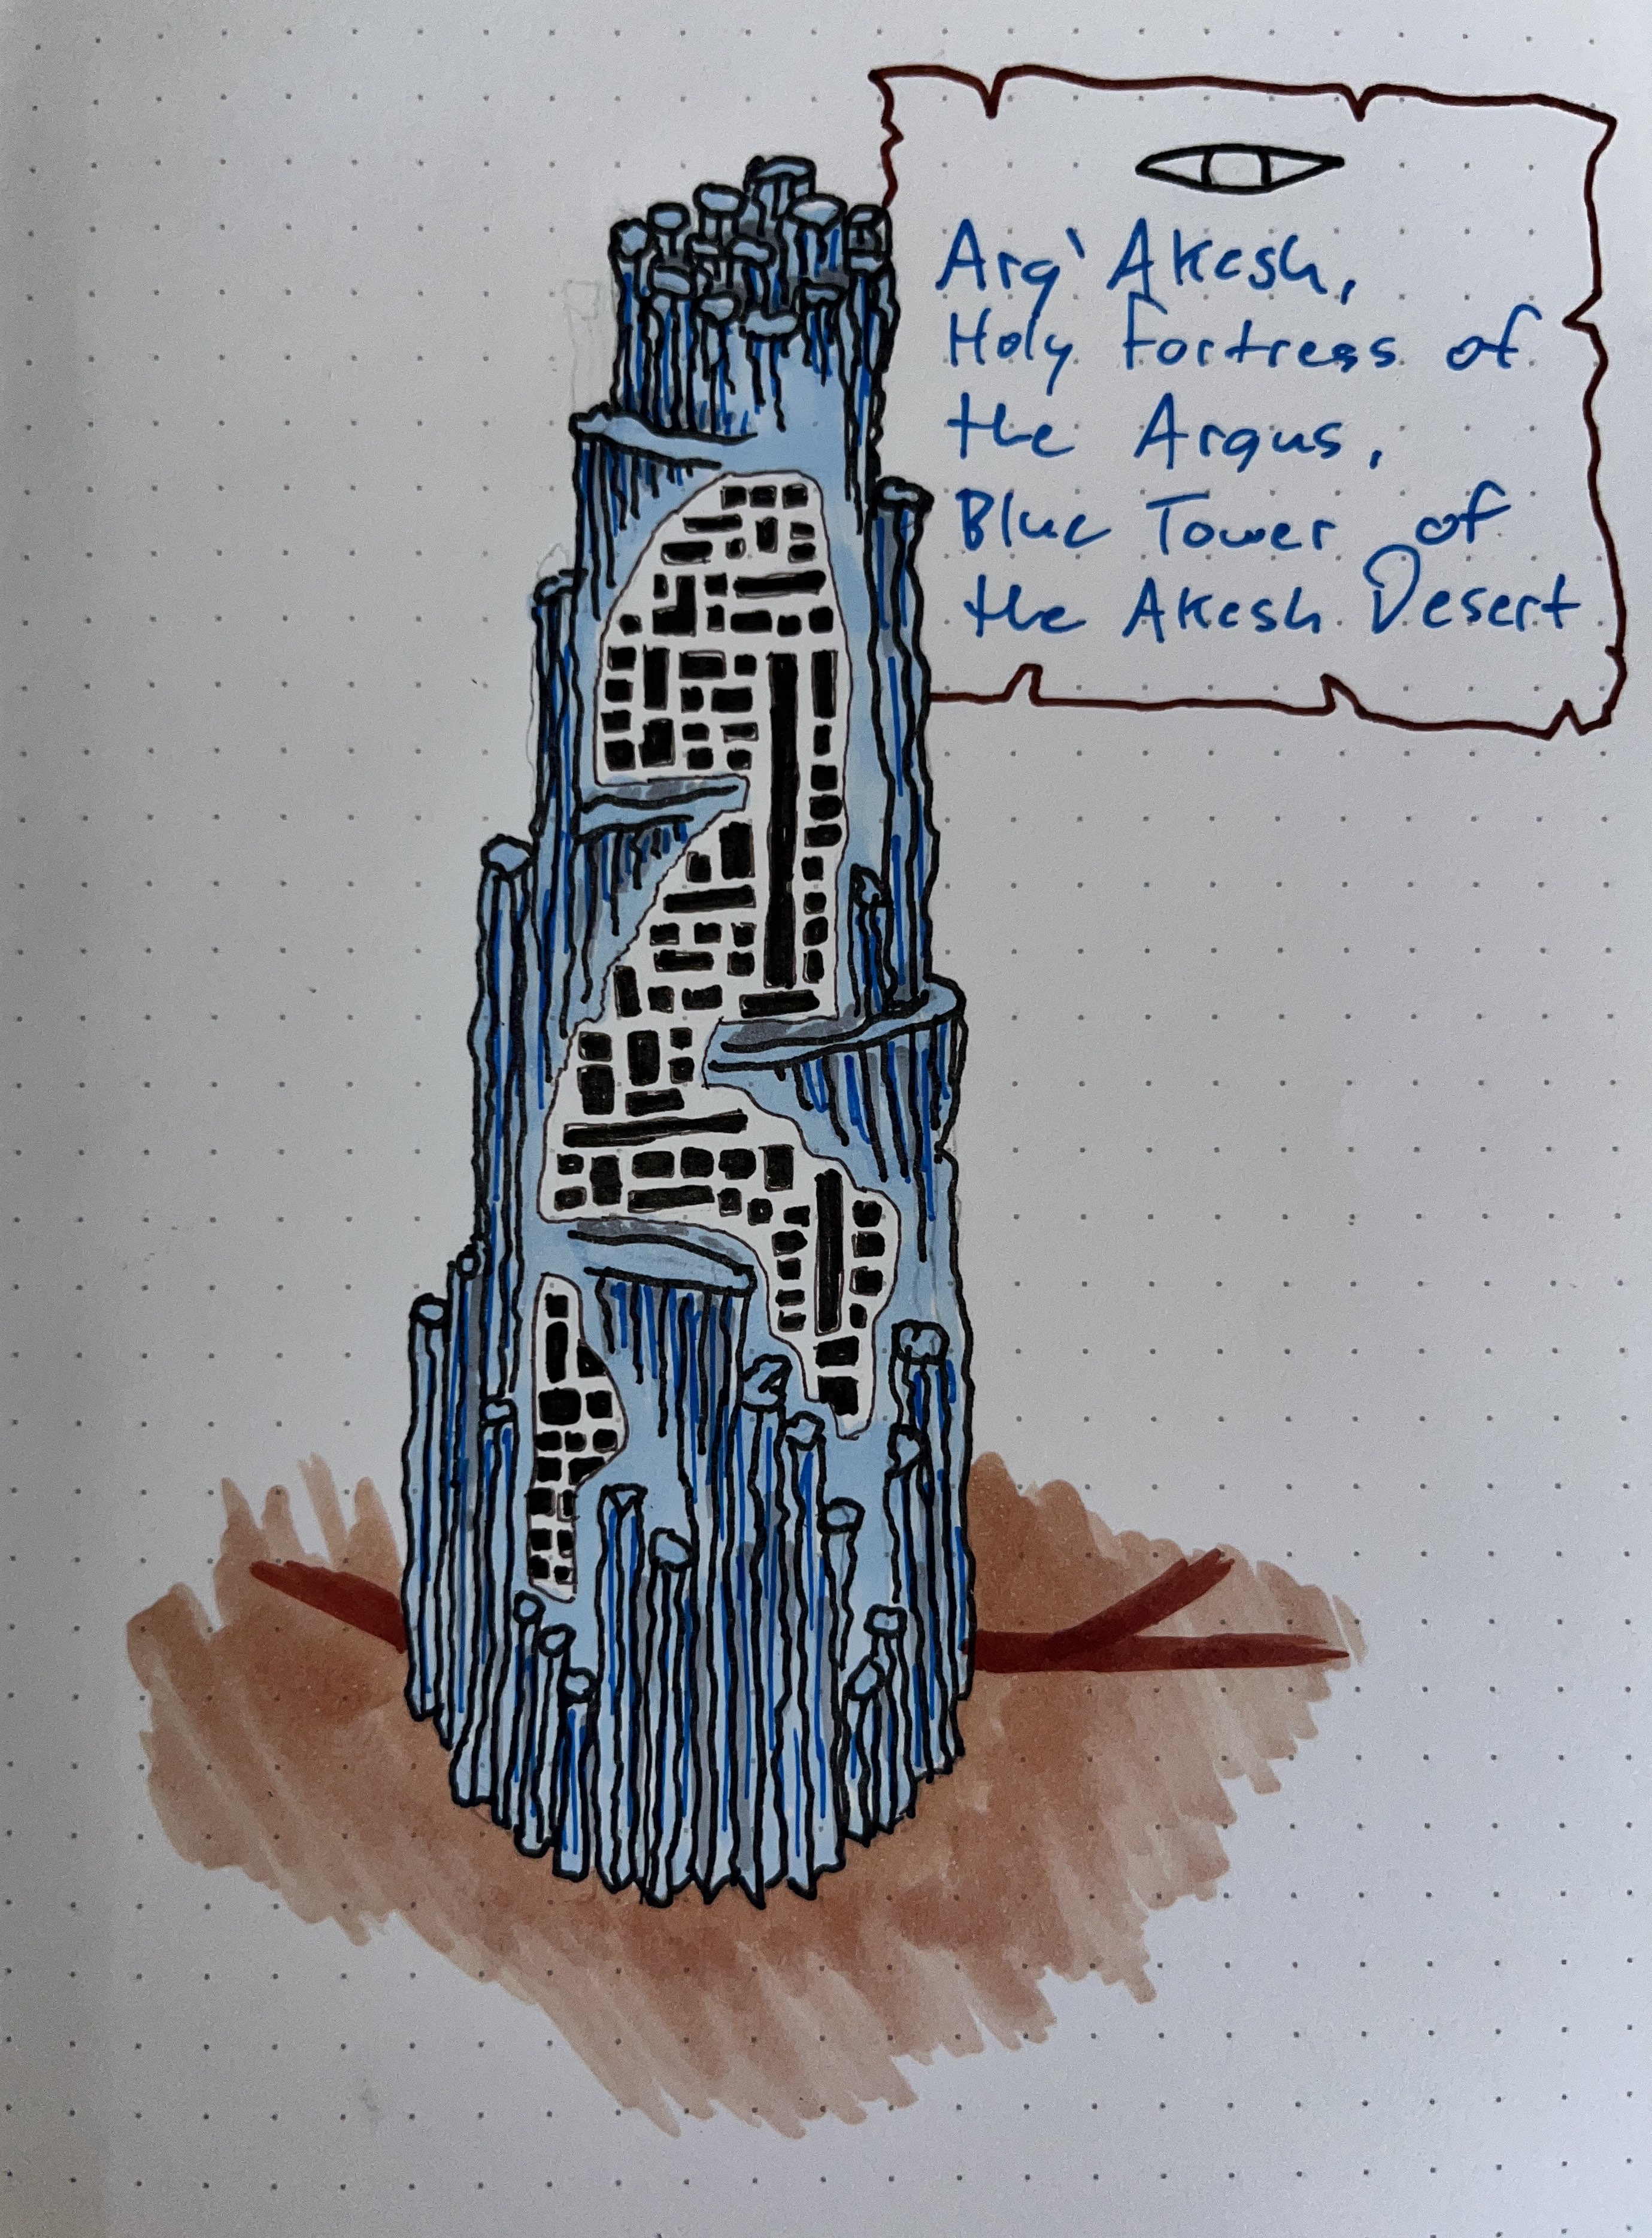 Arq'Akesh,
Holy Fortress of
the Argus,
Blue Tower of
the Akesh Desert